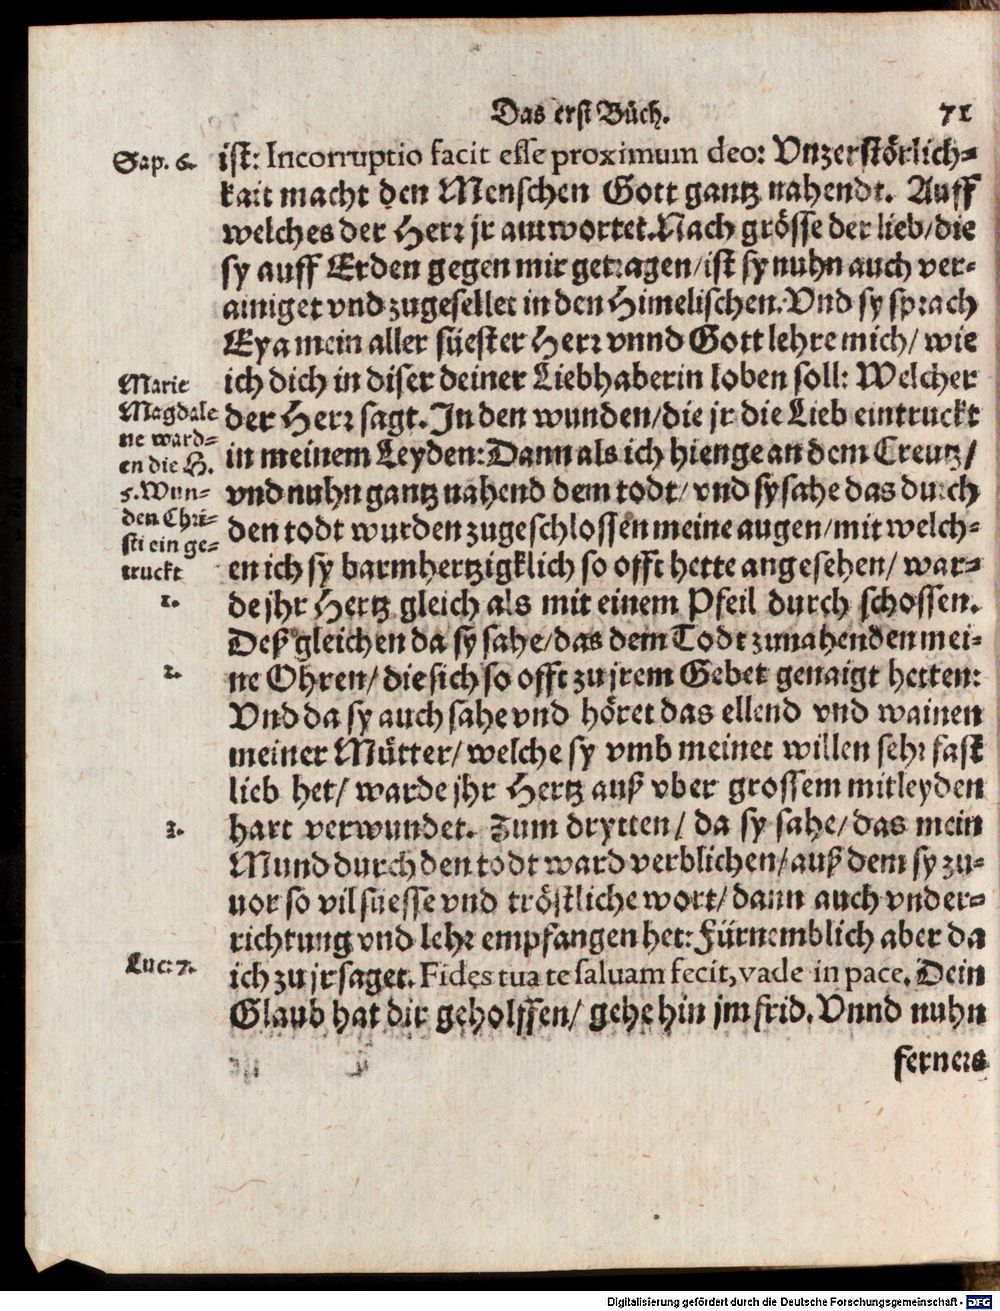 Das erst Bůch. 71
Sap. 6.
ist: Incorruptio facit esse proximum deo: Vnzerstörlich-
kait macht den Menschen Gott gantz nahendt. Auff
welches der Herr jr antwortet. Nach grösse der lieb/ die
sy auff Erden gegen mir getragen/ ist sy nuhn auch ver-
ainiget vnd zugesellet in den Himelischen. Vnd sy sprach
Eya mein aller süester Herr vnnd Gott lehre mich/ wie
ich dich in diser deiner Liebhaberin loben soll: Welcher
der Herr sagt. In den wunden/ die jr die Lieb eintruckt
in meinem Leyden: Dann als ich hienge an dem Creutz/
vnd nuhn gantz nahend dem todt/ vnd sy sahe das durch
den todt wurden zugeschlossen meine augen/ mit welch-
en ich sy barmhertzigklich so offt hette angesehen/ war-
de jhr Hertz gleich als mit einem Pfeil durch schossen.
Deß gleichen da sy sahe/ das dem Todt zunahenden mei-
ne Ohren/ die sich so offt zu jrem Gebet genaigt hetten:
Vnd da sy auch sahe vnd höret das ellend vnd wainen
meiner Můtter/ welche sy vmb meinet willen sehr fast
lieb het/ warde jhr Hertz auß vber grossem mitleyden
hart verwundet. Zum drytten/ da sy sahe/ das mein
Mund durch den todt ward verblichen/ auß dem sy zu-
uor so vil süesse vnd tröstliche wort/ dann auch vnder-
richtung vnd lehr empfangen het: Fürnemblich aber da
ich zu jr saget. Fides tua te saluam fecit, vade in pace. Dein
Glaub hat dir geholffen/ gehe hin jm frid. Vnnd nuhn
ferners
Marie
Magdale
ne ward-
en die H.
5. Wun-
den Chri-
sti ein ge-
truckt
1.
2.
3.
Luc: 7.
Digitalisierung gefördert durch die Deutsche Forschungsgemeinschaft - DFG